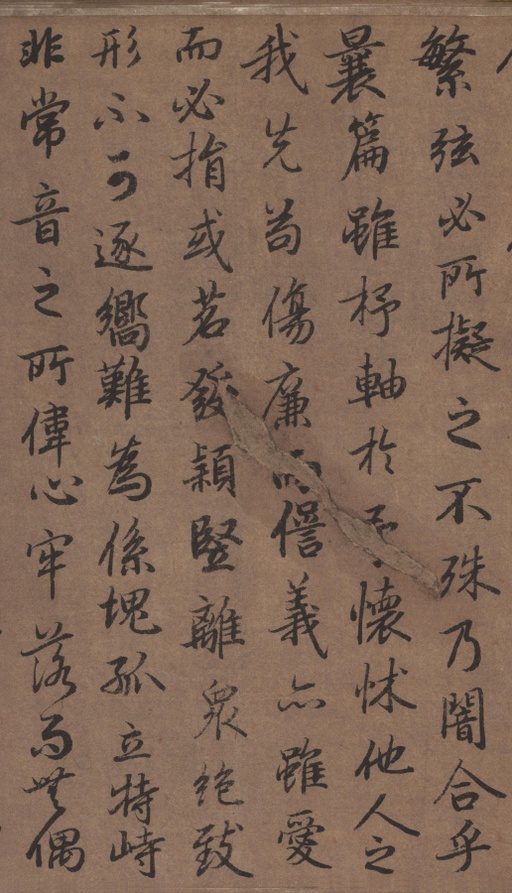 繁弦必所擬之不殊乃闇合乎
曩篇雖杼軸於予懷怵他人之
我先苟傷廉而諐義亦雖愛
而必捐或苕發穎竪離衆絕致
形不可逐嚮難為係塊孤立特峙
非常音之所偉心牢落而無偶